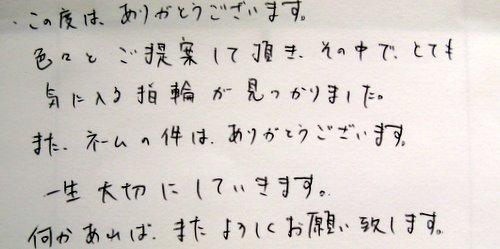 この度は、ありがとうございます。
色々とご提案して頂き、その中で、とても
気に入る指輪が見つかりました。
また、ネームの件は、ありがとうございます。
一生大切にしていきます。
何かあれば、またよろしくお願い致します。